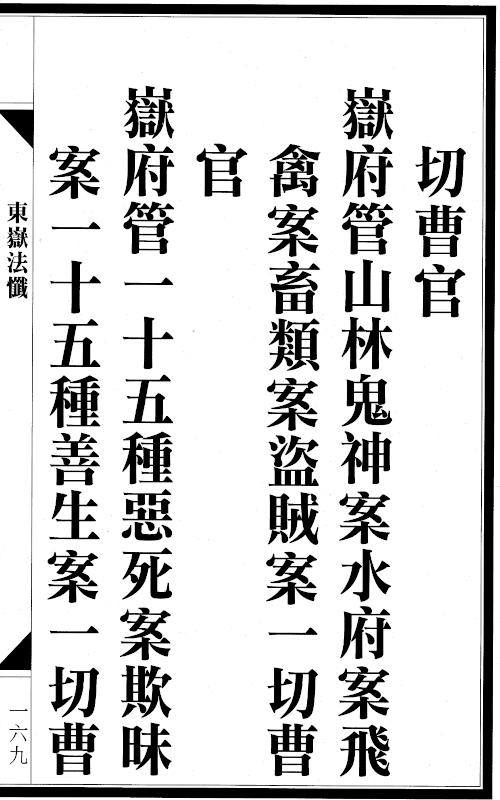 切曹官
嶽府管山林鬼神案水府案飛
禽案畜類案盜賊案一切曹
官
嶽府管一十五種惡死案欺昧
案一十五種善生案一切曹
東嶽法懺
一六九